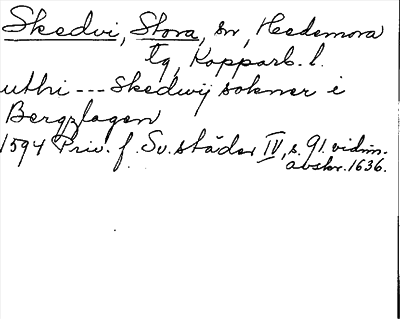 Skedvi, Stora, sn, Hedemora
tg, Kopparb. l.
uthi --- Skedwij sokner i
Bergzlagen
1594 Priv. f. Sv. städer IV, s. 91. vidim.
avskr. 1636.